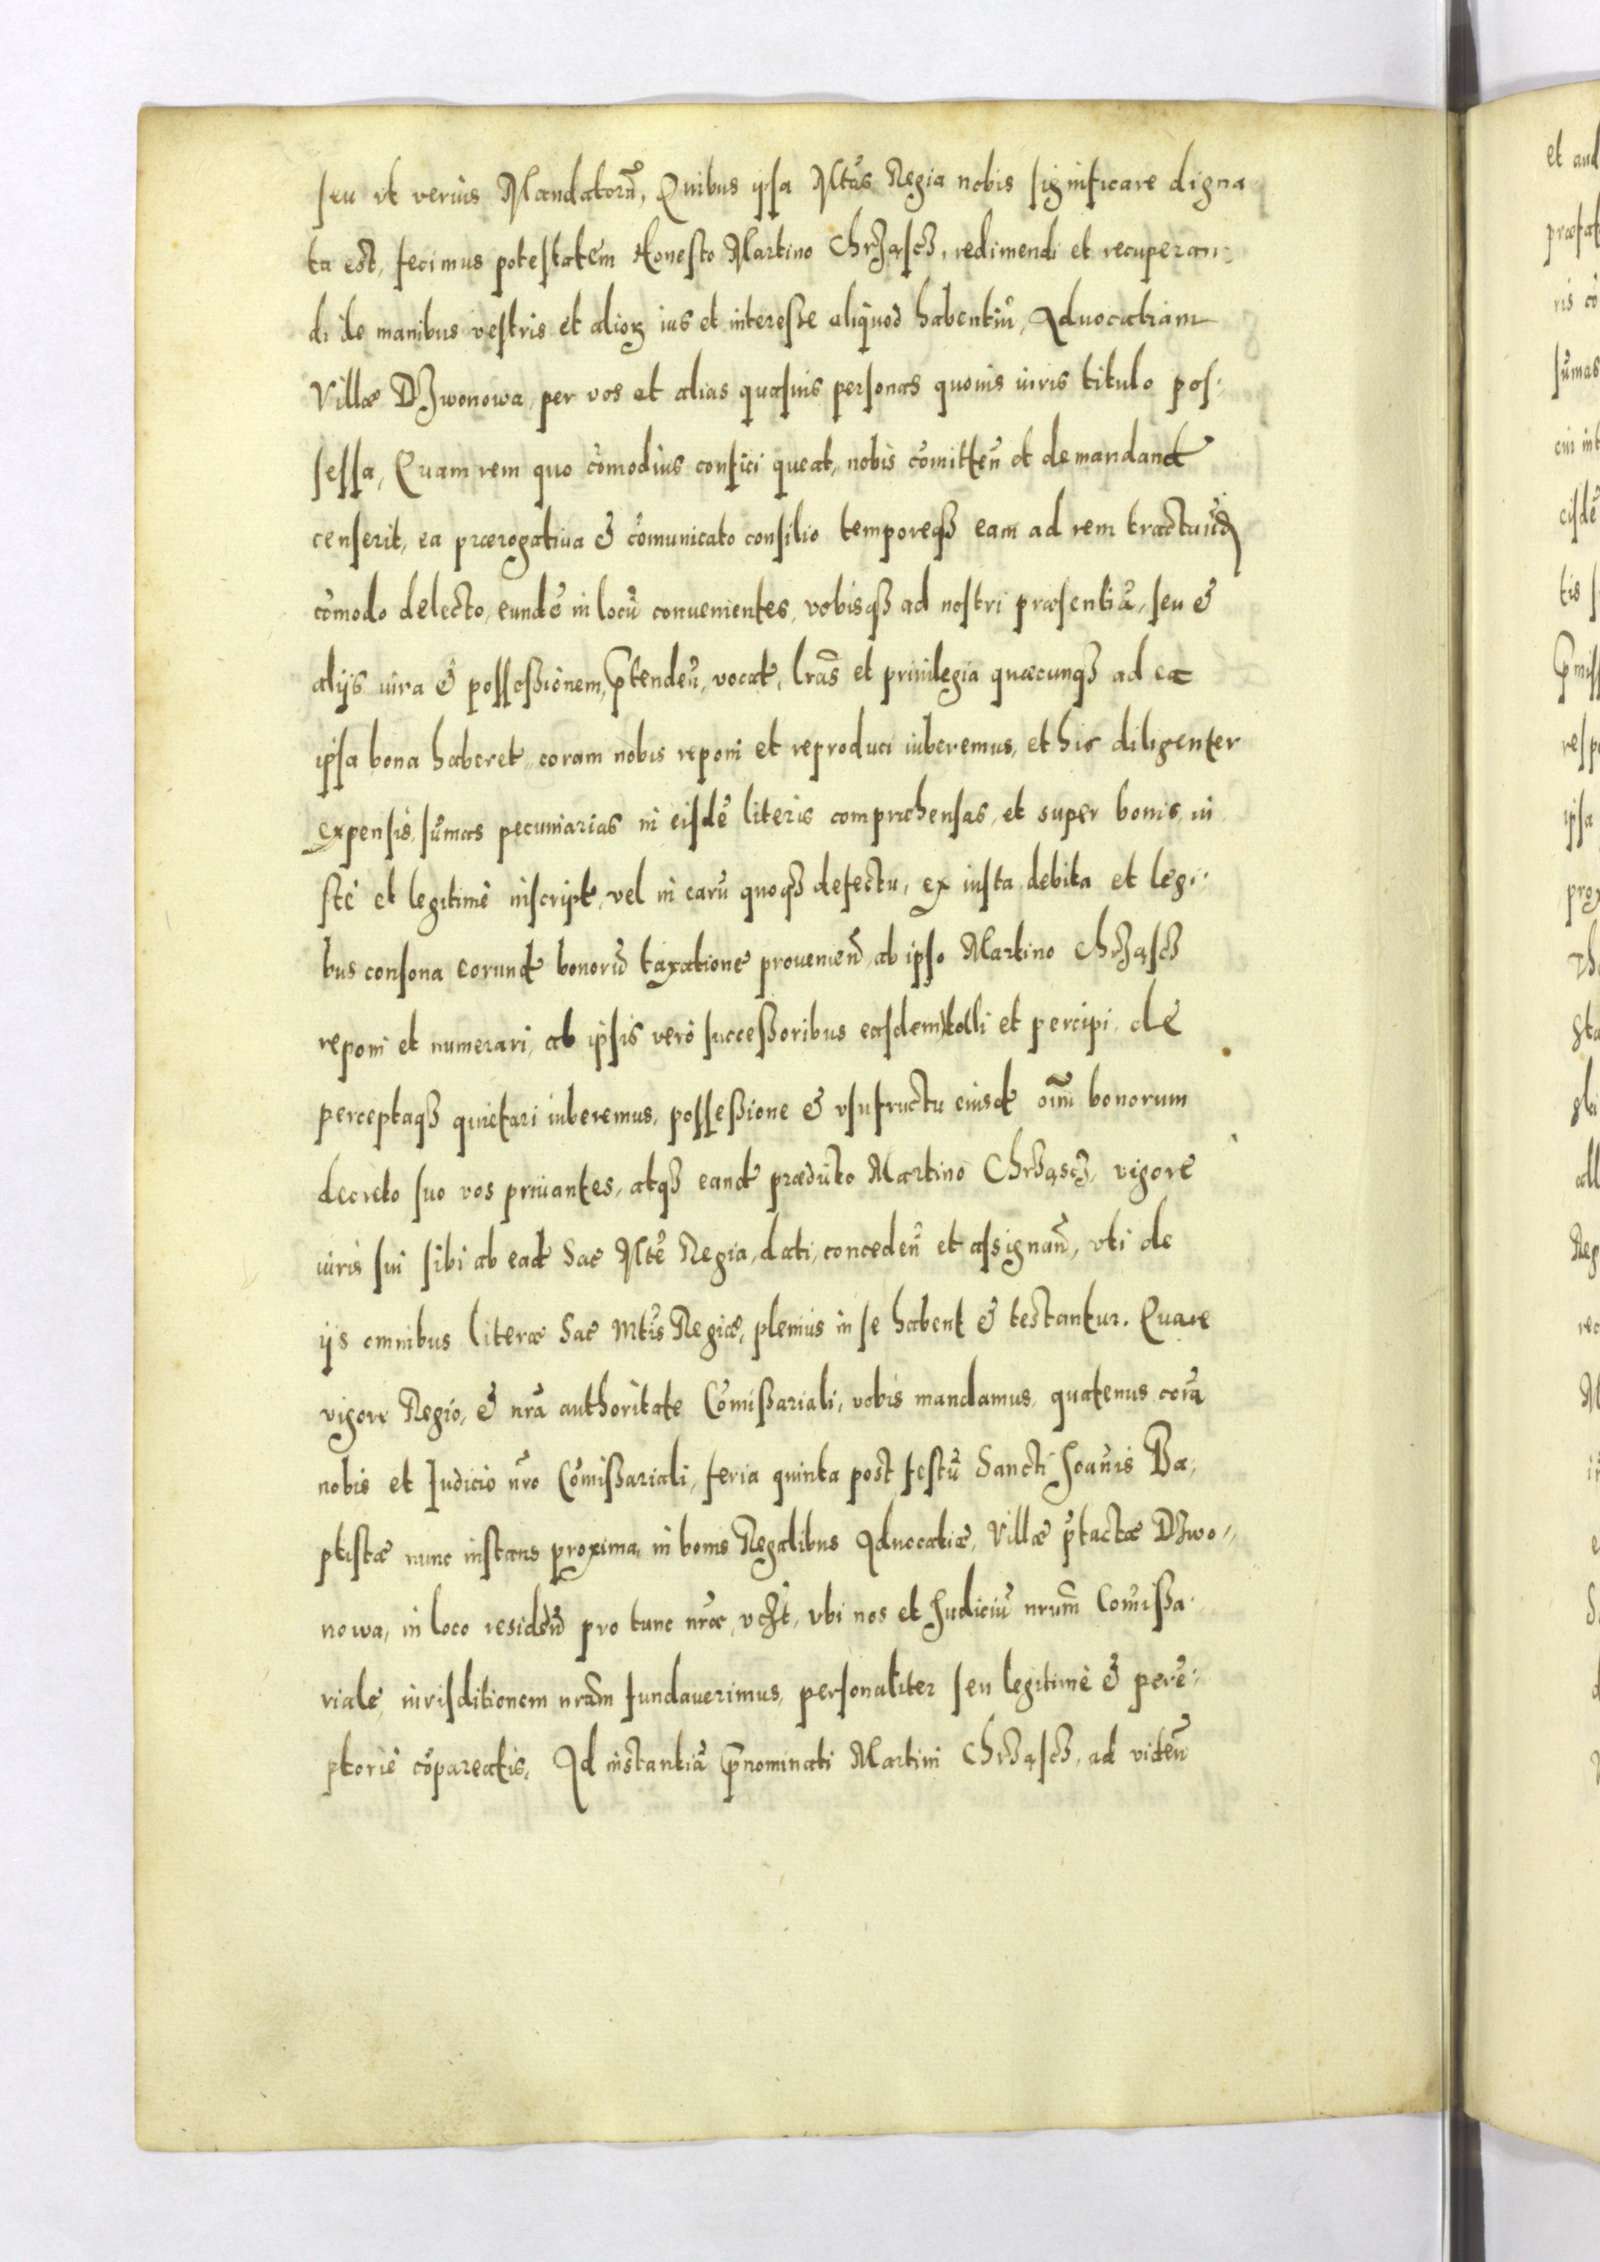 seu vt verius Mandatorũ, Quibus ipsa Mtas Regia nobis significare digna
ta est, fecimus potestatem Honesto Martino Chrząscz, redimendi et recuperan
di de manibus vestris et alioꝝ ius et interesse aliquod habentiũ, Aduocatiam
Villæ Dzwonowa, per vos et alias quasuis personas quouis iuris titulo pos
sessa, Quam rem quo cõmodius confici queat, nobis cõmitteñ et demandand
censerit, ea prærogatiua & cõmunicato consilio temporeq3 eam ad rem tractand
cõmodo delecto, eundẽ in locũ conuenientes, vobisq3 ad nostri præsentiã, seu &
alijs iura & possessionem, p̃tendeñ, vocat, lr̃as et priuilegia quæcunq3 ad ea
ipsa bona haberet, coram nobis reponi et reproduci iuberemus, et his diligenter
expensis, sũmas pecuniarias in eisdẽ literis comprehensas, et super bonis, iu
stè et legitimè inscript, vel in earũ quoq3 defectu, ex iusta debita et legi
bus consona eorund bonorũ taxatione proueniend, ab ipso Martino Chrząscz
reponi et numerari, ab ipsis verò successoribus easdem tolli et percipi, de
perceptaq3 quietari iuberemus, possessione & vsufructu eiusd oĩm bonorum
decreto suo vos priuantes, atq3 eand prædicto Martino Chrząscz, vigore
iuris sui sibi ab ead Sac Mte Regia, dati, concedeñ et assignañ, vti de
ijs omnibus literæ Sac Mtis Regiæ, plenius in se habent & testantur. Quare
vigore Regio, & nr̃a authoritate Cõmissariali, vobis mandamus, quatenus corã
nobis et Iudicio nr̃o Cõmissariali, feria quinta post festũ Sancti Joañis Ba
ptistæ nunc instans proxima, in bonis Regalibus Aduocatiæ, Villæ p̃tactæ Dzwo
nowa, in loco resideñ pro tunc nr̃æ, vbi nos et Judiciũ nrum̃ Com̃issa
riale, iurisditionem nram̃ fundauerimus, personaliter seu legitimè & perẽ
ptoriè cõpareatis, Ad instantiã p̃nominati Martini Chrząscz, ad videñ
et aud
præfat
ris cõ
sũmas
cui int
eisdẽ
tis
p̃miss
resp
ipsa
prox